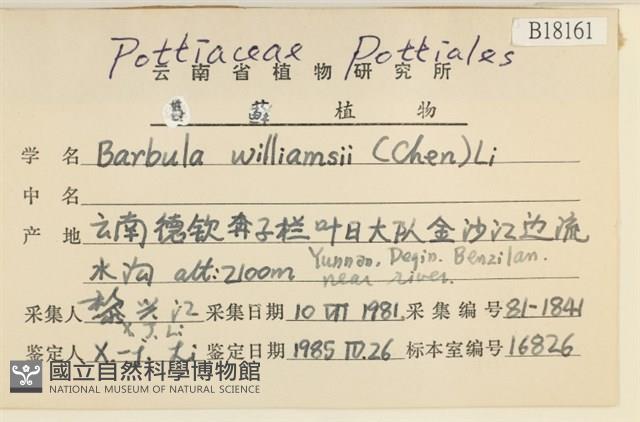 B18161
Pottiaceae Pottiales
云南省植物研究所
苔藓植物
学名 Barbula williamsii (Chen) Li
中名
产地 云南德钦奔子栏叶日大队金沙江边流
水沟 alt: 2100m Yunnan. Deqin. Benzilan.
near river.
采集人 黎兴江 采集日期 10 VII 1981. 采集编号 81-1841
X. J. Li
鉴定人 X-j. Li 鉴定日期 1985 IV. 26 标本室编号 16826
國立自然科學博物館
NATIONAL MUSEUM OF NATURAL SCIENCE